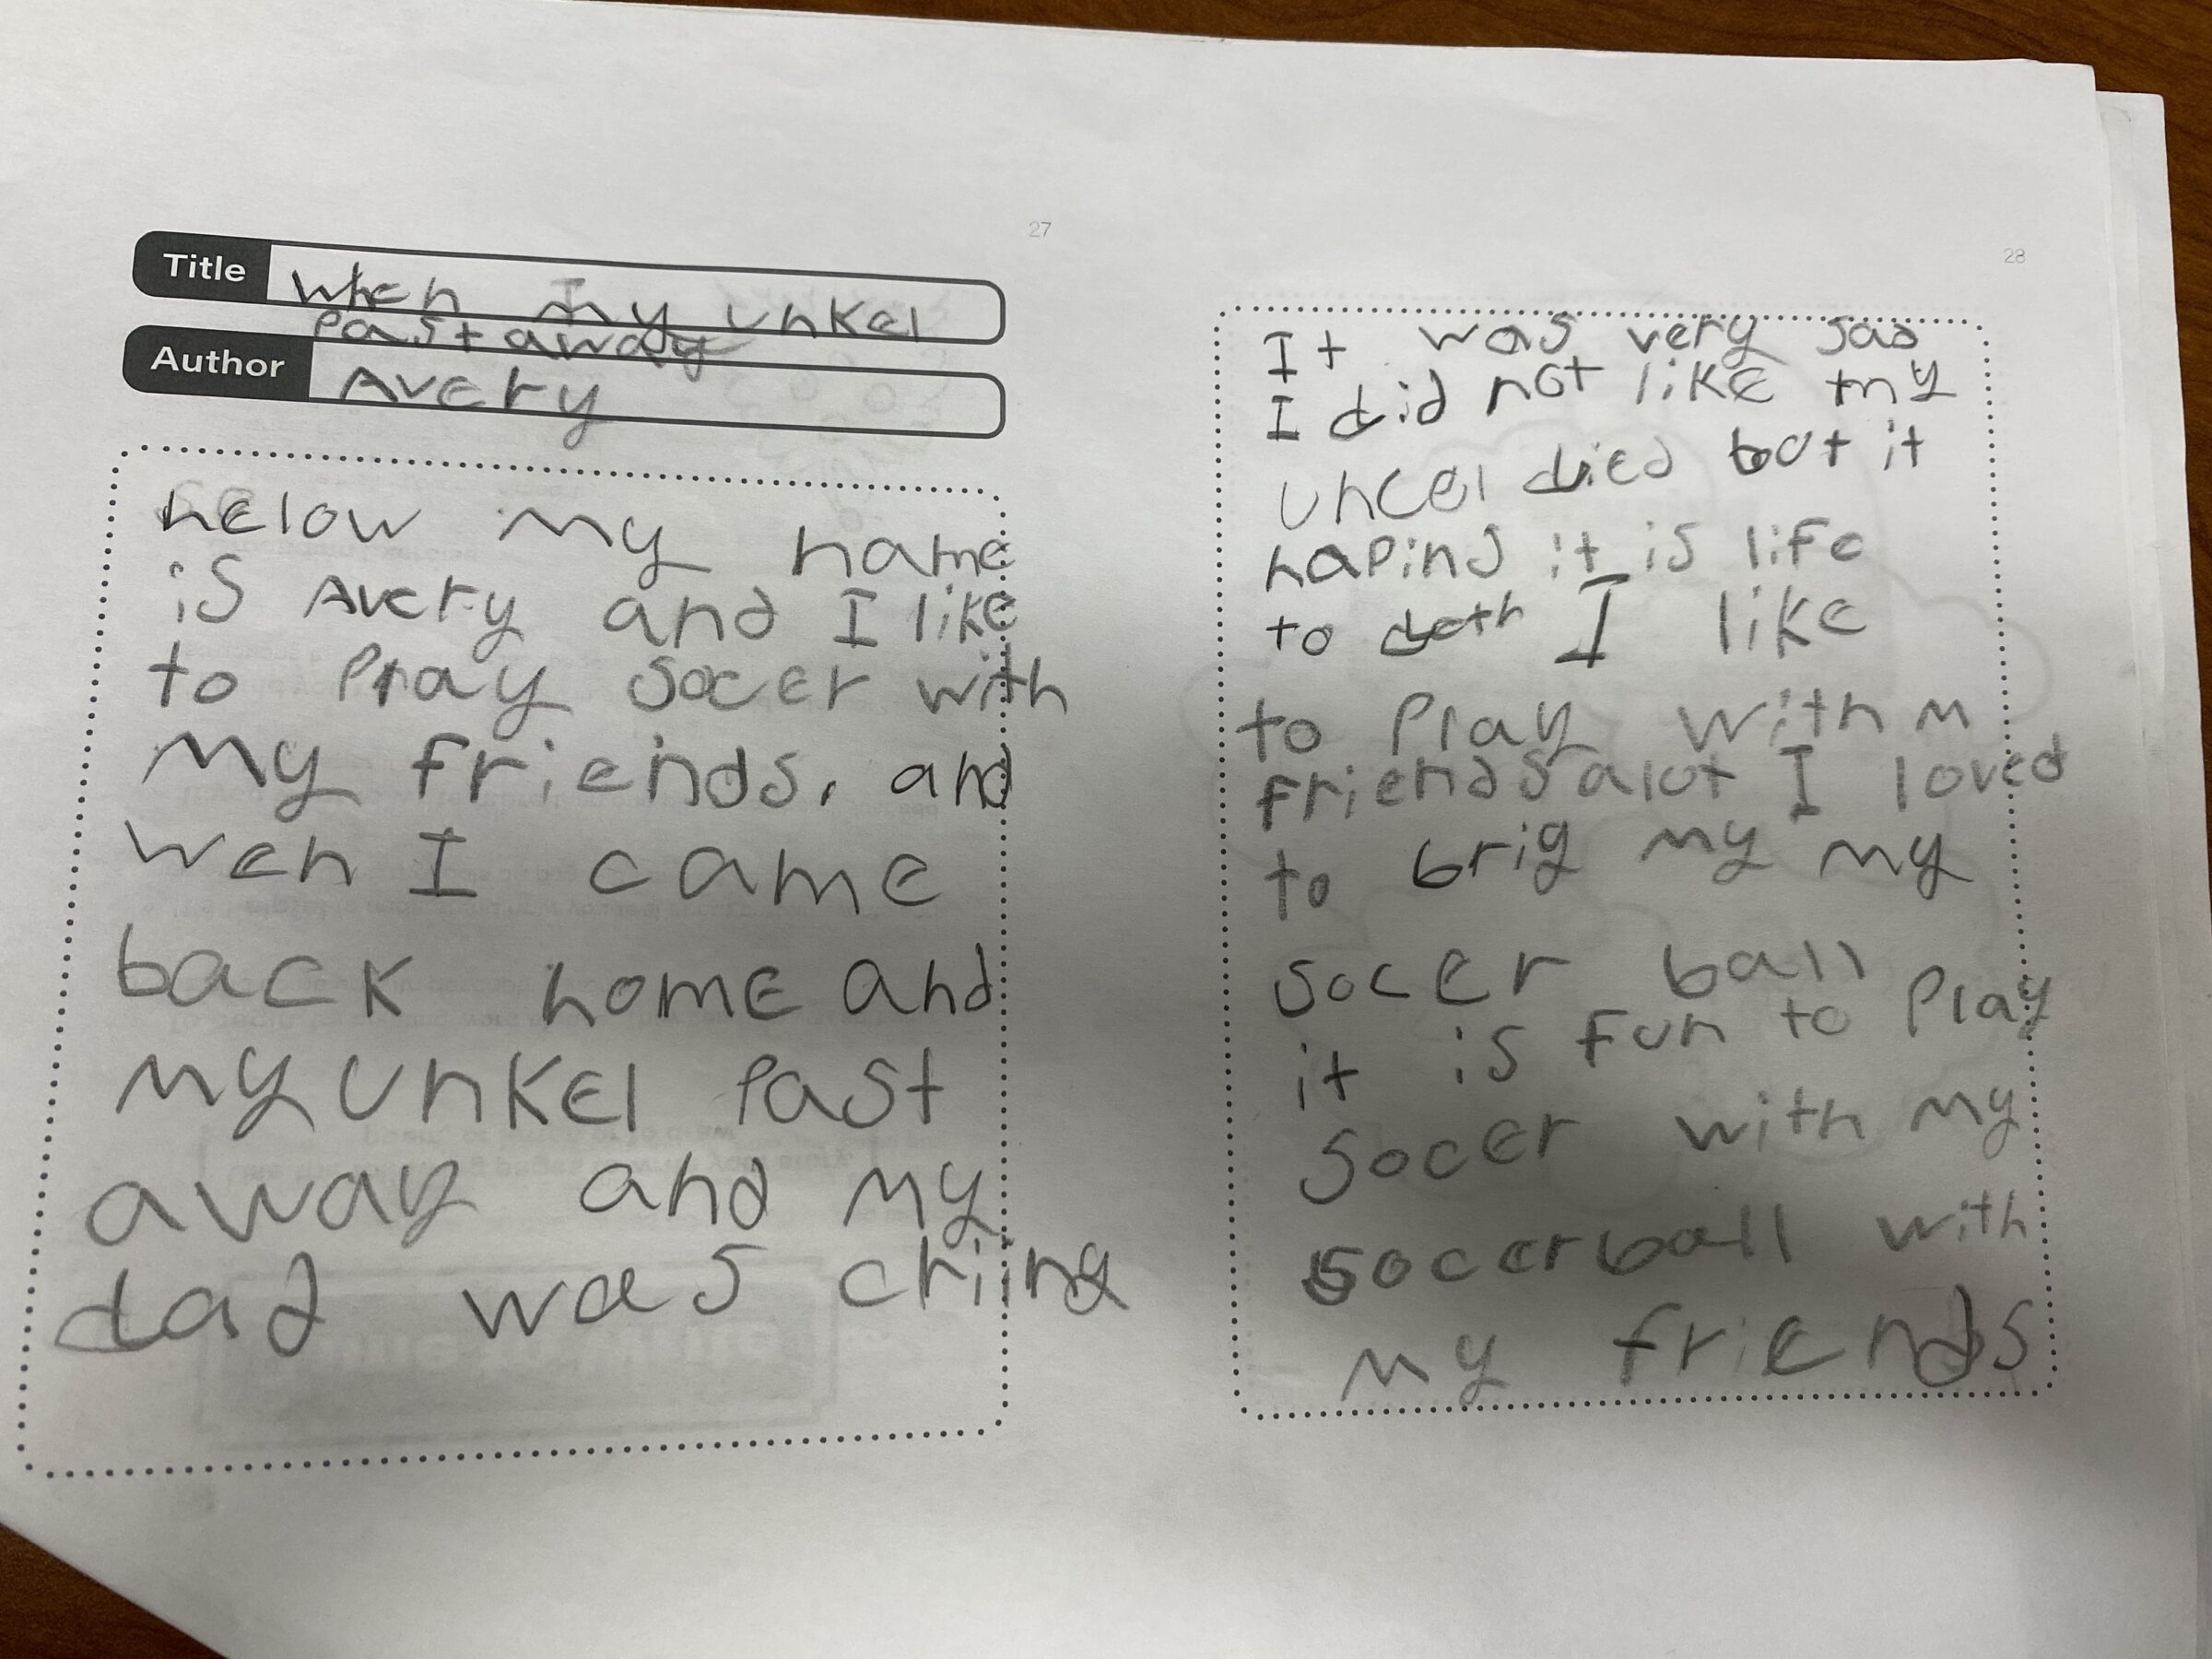 27
Title
When my unkel
past away
Author
Avery
helow my name
is Avery and I like
to Play socer with
my friends, and
wen I came
back home and
my unkel past
away and my
dad was chiing
28
It was very sad
I did not like my
uncel died but it
haping it is life
to deth I like
to Play with m
friends alot I loved
to brig my my
socer ball
it is fun to Play
socer with my
socerball with
my friends